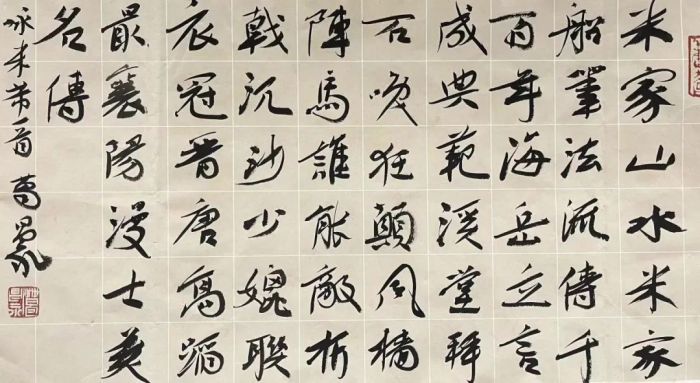 米家山水米家
船筆法流傳千
百年海岳立言
成典範溪堂拜
石喚狂顛風檣
陣馬誰能敵折
戟沉沙少媲聯
衣冠晋唐高蹈
最襄陽漫士美
名傳
咏米芾一首 葛